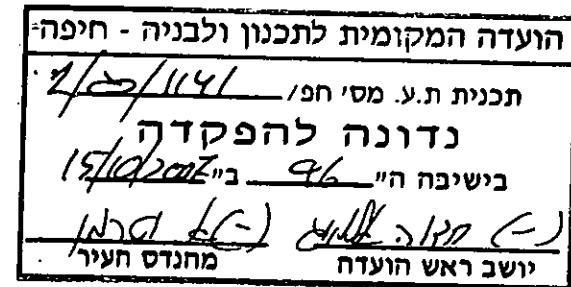 הועדה המקומית לתכנון ולבניה - חיפה
תכנית ת.ע. מס' חפ/ 1141
נדונה להפקדה
בישיבה ה" 96 ב" 15/10/2007
(-) (-)
יושב ראש הועדה מהנדס העיר